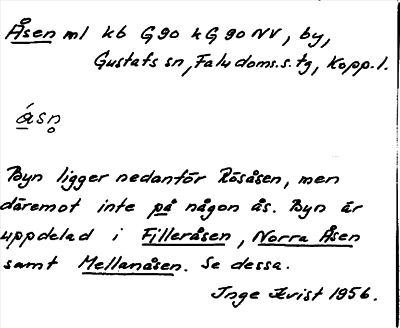 Åsen ml kb G 90 kG 90 NV, by,
Gustafs sn, Falu doms.s. tg, Kopp. l.
ás̥n̥
Byn ligger nedanför Rösåsen, men
däremot inte på någon ås. Byn är
uppdelad i Filleråsen, Norra Åsen
samt Mellanåsen. Se dessa.
Inge Kvist 1956.